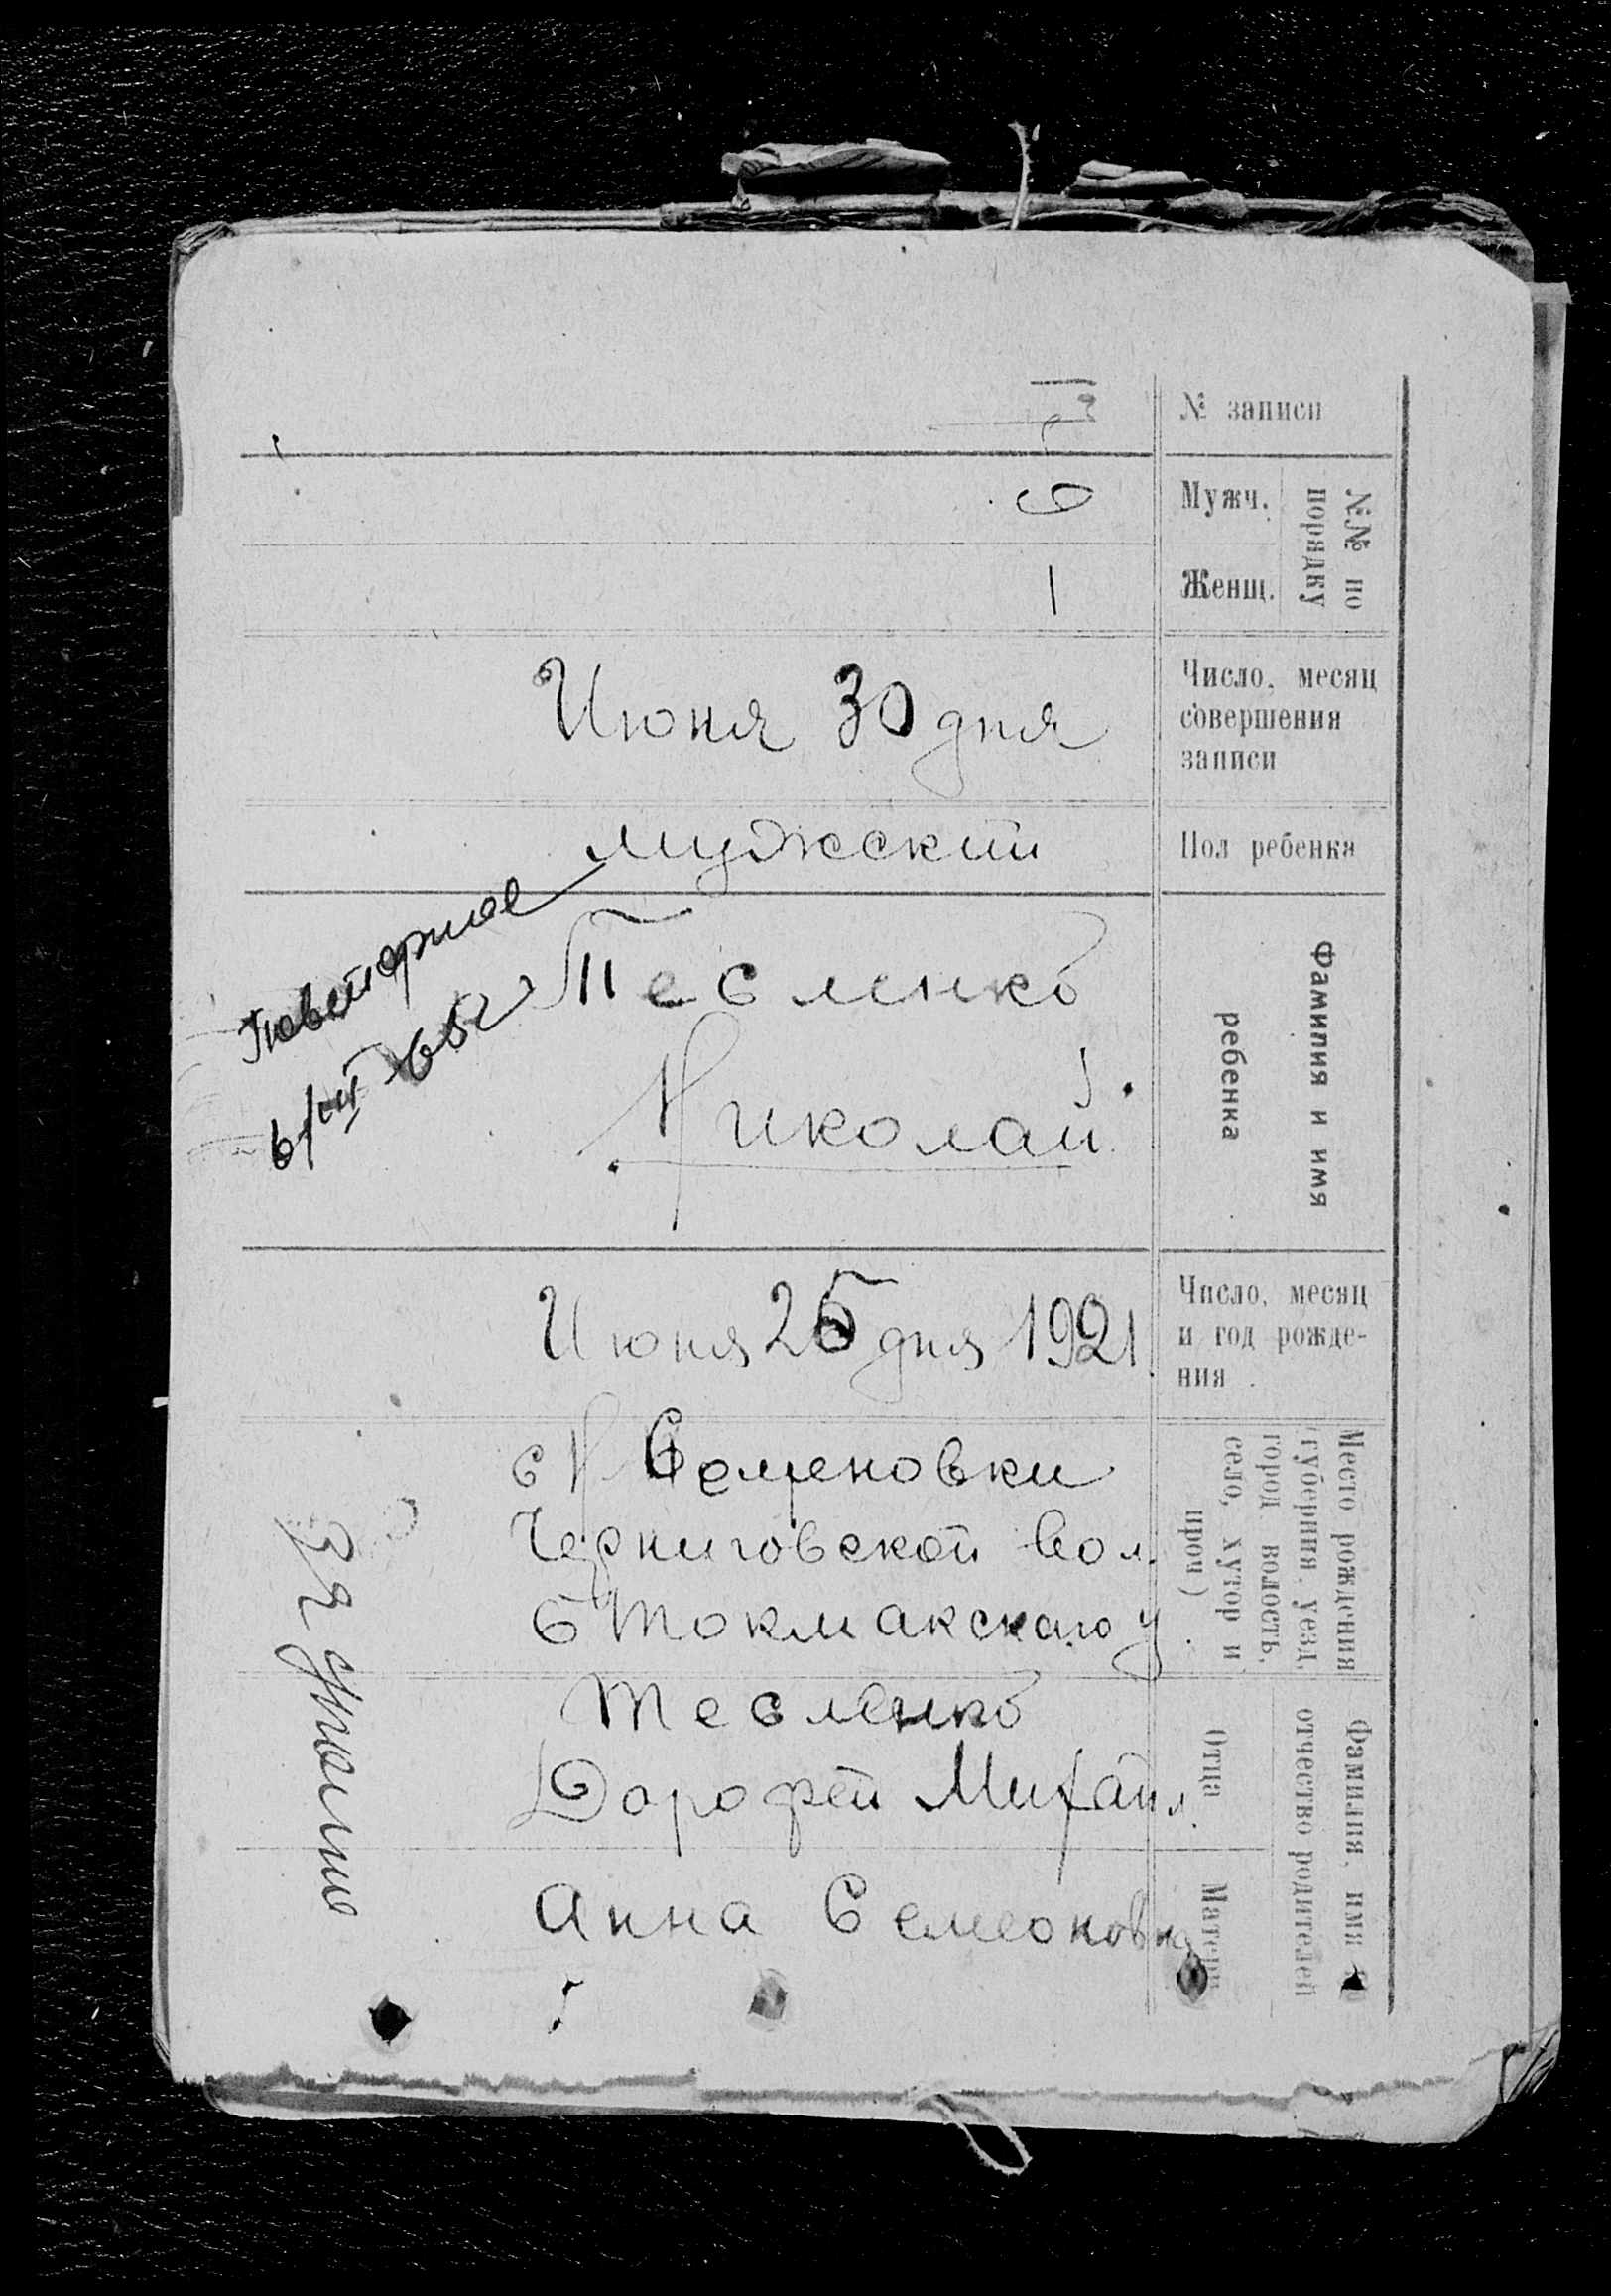 № записи
№№ по
порядку
Мужч.
6
Женщ.
Число, месяц
совершения
записи
Июня 30 дня
Пол ребенка
мужский
Фамилия и имя
ребенка
Тесленко
Николай
Повторное
Число, месяц
и год рожде-
ния
Июня 25 дня 1921
Место рождения
(губерния, уезд,
город волость,
село, хутор и
проч)
с Н Семеновки
Черниговской вол.
Б Токмакскаго у
Фамилия, имя
отчество родителей
Отца
Тесленко
Дорофей Михайл.
Матери
Анна Семеоновна